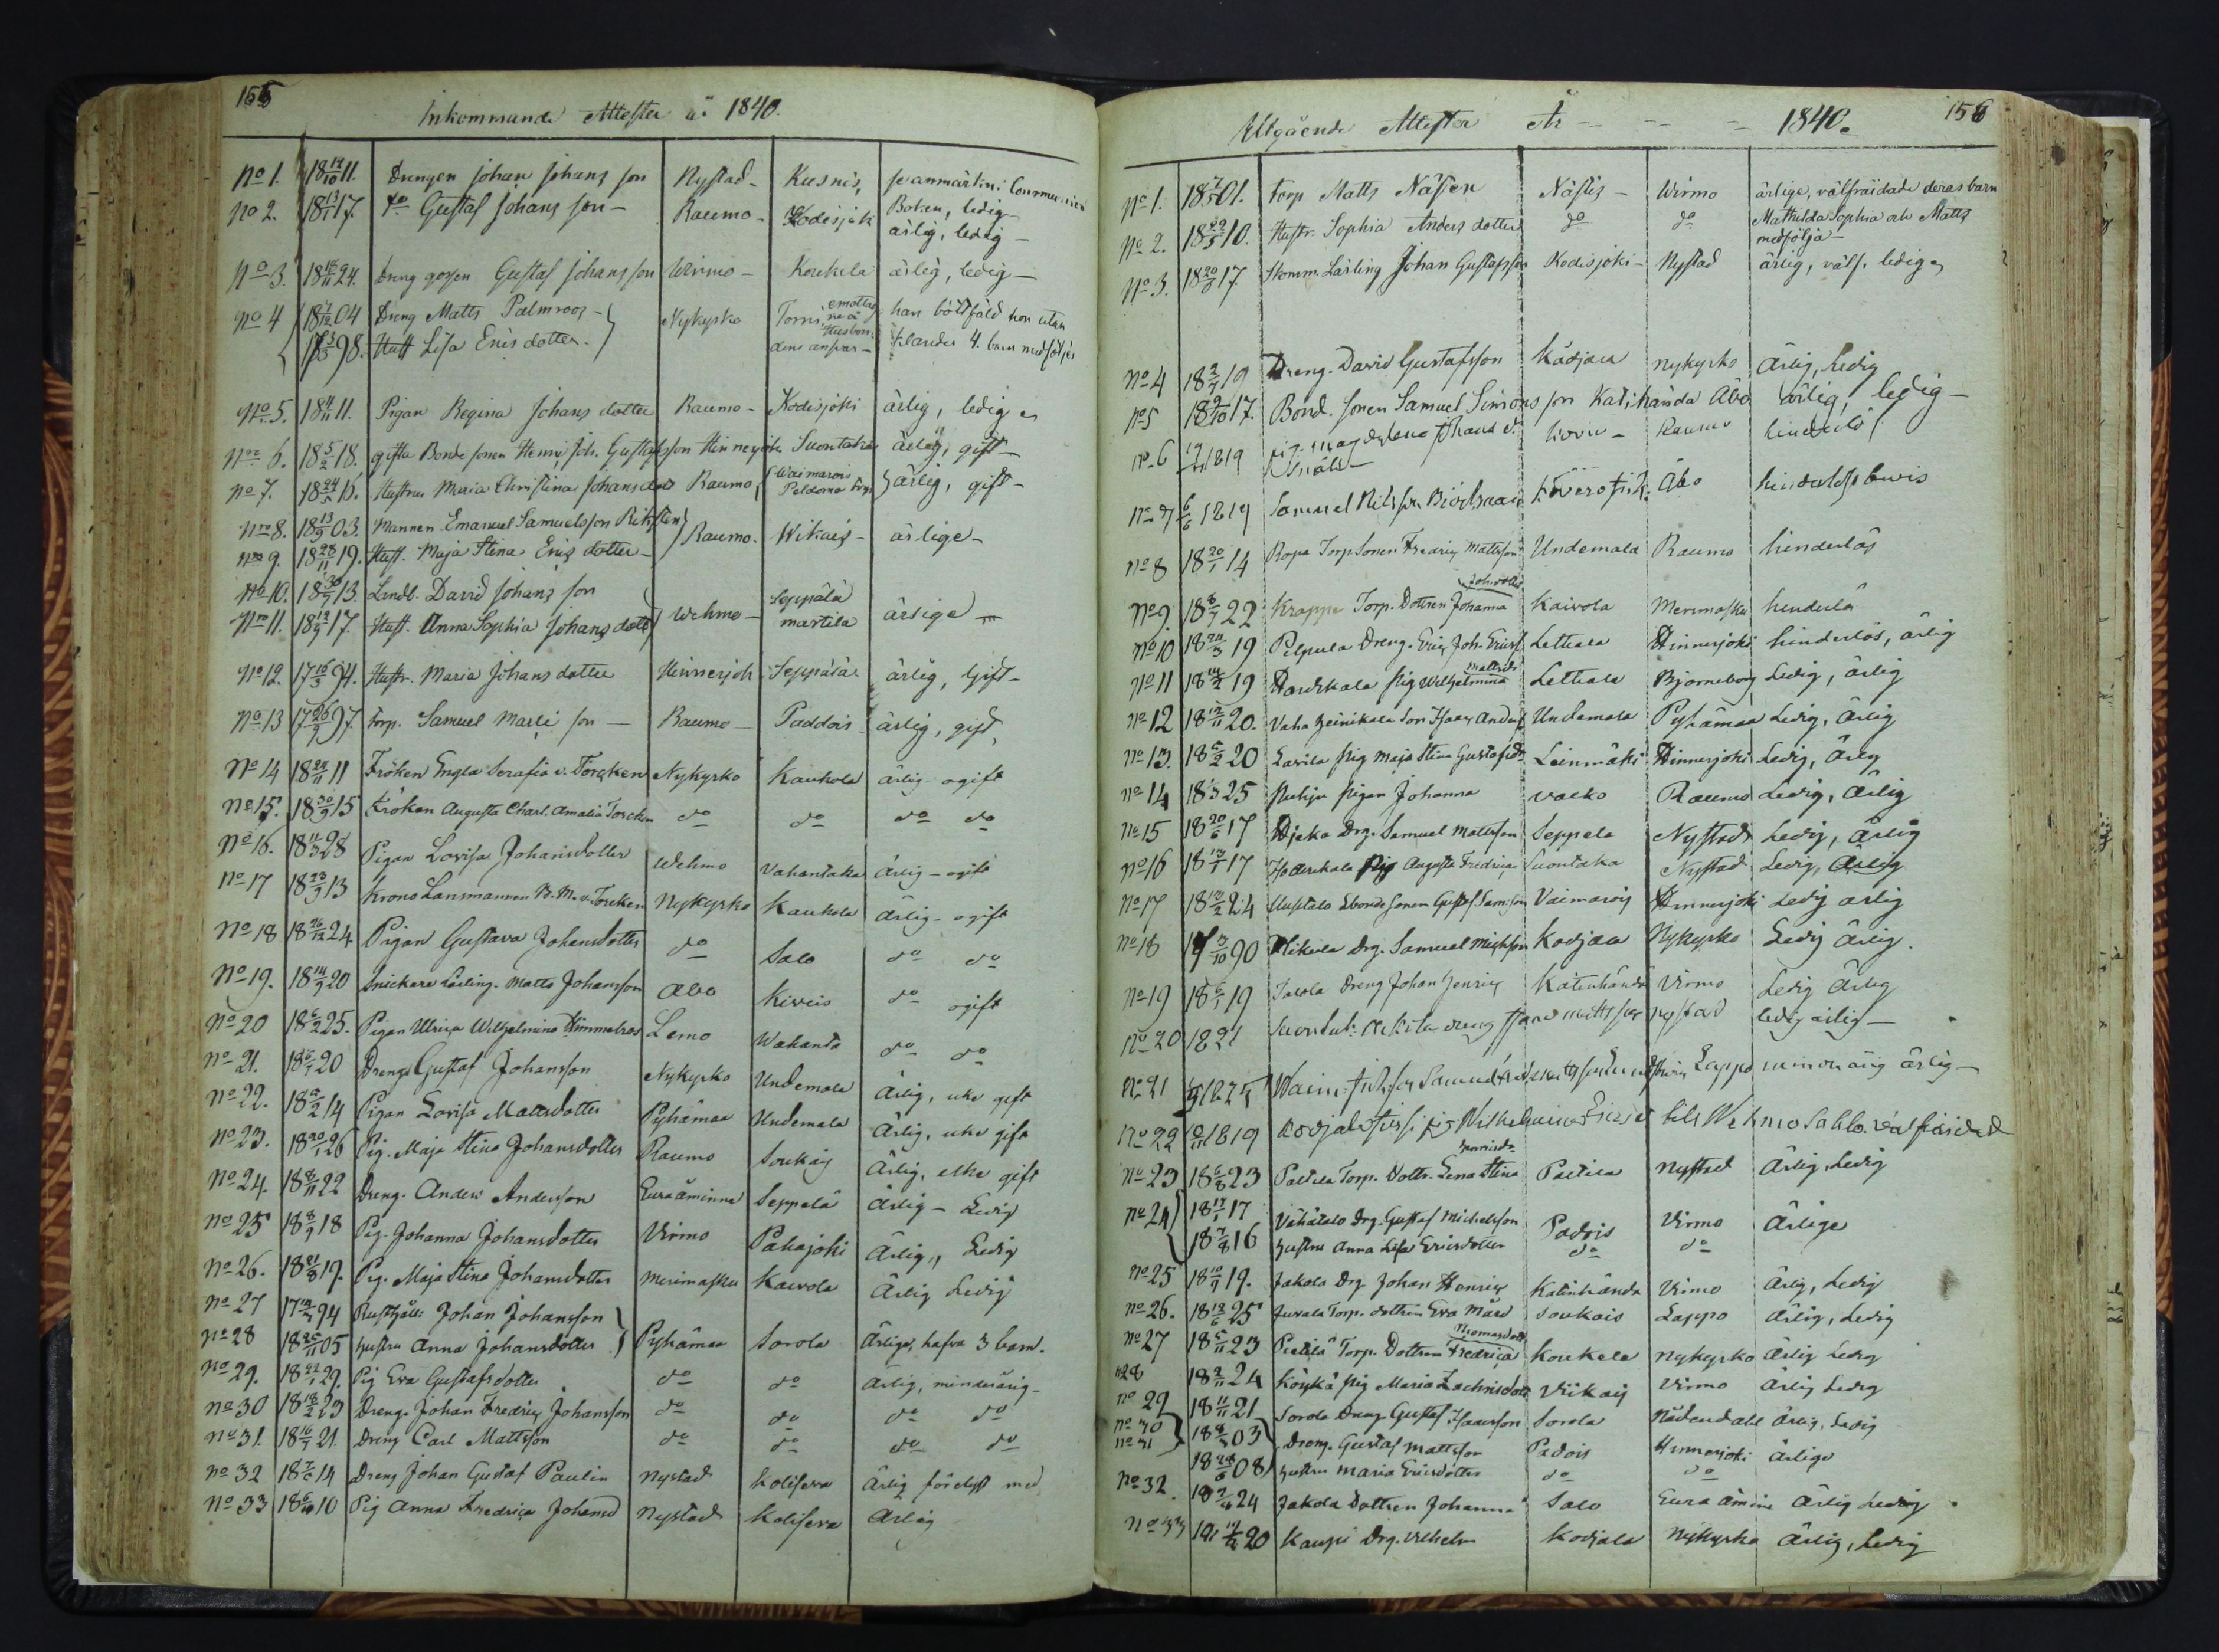 155
Inkommande Attester år 1840.
No 1. 18 14/10 11. Drengen Johan Johans son Nystad - Kusnis, se anmärkn: Communion
No 2. 18 13/1 17. do Gustaf Johans son - Raumo - Kodisjok Boken, ledig
ärlig, ledig -
No 3. 18 15/11 24. Dreng gossen Gustaf Johans son Wirmo - Koukela ärlig, ledig -
No 4 18 1/12 04 Dreng Matts Palmroos - Nykyrko Torni, han bötfäld hon utan
98. Hust Lisa Eriks dotter. dens ansvar - klander 4. barn medföljer
No 5. 18 4/11 11. Pigan Regina Johans dotter Raumo - Kodisjoki ärlig, ledig
No 6. 18 5/2 18. gifta Bonde sonen Henric Joh. Gustafsson Hinnerjoki Suontaka ärlig, gift -
No 7. 18 24/5 16. Hustrun Maria Christina Johansdotr Raumo Waimarois ärlig, gift -
Peldoma torp
No 8. 18 13/9 03. Mannen Emanuel Samuelsson Raumo. Wikais - ärlige -
No 9. 18 28/11 19. Hust. Maja Stina Erics dotter -
No 10. 18 30/7 13. Landb. David Johans son Wehmo - Seppälä ärlige -
No 11. 18 12/9 17. Hust. Anna Sophia Johans dott martila
No 12. 17 16/3 94. Hustr. Maria Johans dotter Hinnerjoki Seppälä. ärlig, Gift -
No 13 17 26/9 97. torp. Samuel Marti son - Raumo - Paddois ärlig, gift,
No 14 18 24/11 11 Fröken Engla Serafia v. Törcken Nykyrko Kaukola ärlig ogift
No 15. 18 30/9 15 Fröken Augusta Charl. Amalia Torcken do do do do
No 16. 18 11/3 28 Pigan Lovisa Johansdotter Wehmo Vahantaka Ärlig - ogift
No 17 18 23/9 13 Krono Länsmannen B. M. v. Torcken Nykyrko Kaukola Ärlig - ogift
No 18 18 26/12 24 Pigan Gustava Johansdotter do Salo do do
No 19. 18 14/9 20 Snickare Lärling. Matts Johansson Abo Kiveis do ogift
No 20 18 6/2 25. Pigan Ulrica Wilhelmina Himmelroos Lemo Wakanta do do
No 21. 18 6/7 20 Dreng. Gustaf Johansson Nykyrko Undemala Ärlig, icke gift
No 22. 18 5/2 14 Pigan Lovisa Mattsdotter Pyhämaa Undemala Ärlig, icke gift
No 23. 18 20/1 26 Pig. Maja Stina Johansdotter Raumo Soukais Ärlig, icke gift
No 24. 18 8/11 22 Dreng. Anders Andersson Euraåminne Seppelä Ärlig - Ledig
No 25 18 8/9 18 Pig. Johanna Johansdotter Virmo Pahajoki Ärlig, Ledig
No 26. 18 21/8 19. Pig. Maja Stina Johansdotter Merimasku Kaivola Ärlig Ledig
No 27 17 94 Rusthåll: Johan Johansson
No 28 18 25/11 05 hustru Anna Johansdotter Pyhämaa Sorola Ärliga, hafva 3 barn.
No 29. 18 22/1 29. Pig Eva Gustafsdotter do do Ärlig, minderårig -
No 30 18 18/2 23 Dreng. Johan Fredric Johansson do do do do
No 31. 18 16/7 21. Dreng Carl Mattsson do do do do
No 32 18 7/5 14 Dreng Johan Gustaf Paulin Nystad Kolisera Ärlig förelyst med
No 33 18 10 Pig Anna Fredrica Johansd Nystad Kolisera Ärlig
156
Utgående Attester År - - - 1840.
No 1. 18 01. torp Matts Näsen Näsits - Wirmo ärlige, välfräjdade deras barn
No 2. 18 10. Hustr. Sophia Anders dotter do do Mathilda Sophia och Matts
medfölja -
No 3. 18 17. Lärling Johan Gustafsson Kodisjoki - Nystad ärlig, välf. ledig
No 4 18 2/7 19 Dreng. David Gustafsson Kodjala nykyrko Ärlig, ledig
No 5 18 9/10 17. Bond. sonen Samuel Simons son Katihända Åbo ärlig, ledig -
No 6 1819 pig. magdalena Johans d. Raumo hinderlös
No 7 6/6 1819 Samuel Nilsson Åbo hinderlöst bewis
No 8 18 20/1 14 Ropa Torp. Sonen Fredric Mattsson Undemala Raumo hinderlös
No 9. 18 8/7 22 Krappe Torp. Dottren Johanna Joh. dotter Kaivola Merimasku hinderlös
No 10 18 19 Pelpula Dreng. Eric Joh. Ericss Lettala Hinnerjoki hinderlös, ärlig
No 11 18 14/2 19 Haudikala pig Wilhelmina Mattsdr Lettala Bjorneborg Ledig, ärlig
No 12 18 12/11 20. Vaha heinikala Son Isaac Anders Undemala Pyhämaa Ledig, Ärlig
No 13. 18 5/2 20 Lavila pig Maja Stina Gustafsdr Leinmäki Hinnerjoki Ledig, Ärlig
No 14 18 25 pigan Johanna valko Raumo Ledig, Ärlig
No 15 18 20/6 17 Drg. Samuel Mattsson Seppela Nystad Ledig, Ärlig
No 16 18 17 pig Augusta Fredrica Suontaka Nystad Ledig, Ärlig
No 17 18 24 Uustalo Ebonde sonen Gustaf Samsson Vaimarois Hinnerjoki Ledig arlig
No 18 17 13/10 90 Mikola Drg. Samuel Michsson Kodjala Nykyrko Ledig Ärlig.
No 19 18 6/1 19 Jacola Dreng Johan Henric Katinhända Virmo Ledig Ärlig
No 20 1821 dreng Isaac Mattsson nystad ledig ärlig -
No 21 1825 Lappo minderårig ärlig -
No 22 1819 pig Wilhelmina till Wehmo Sahlo. välfräidad
No 23 18 6/8 23 Paltila Torp. Dottr. Lena Stina Paltila nystad Ärlig, Ledig
No 24 18 17 Vähätalo Drg. Gustaf Michelsson Padois Virmo Ärlige
18 7/8 16 hustru Anna Lisa Ericsdotter do do
No 25 18 10/9 19. Jakola Drg Johan Henric Katinhända Virmo Ärlig, Ledig
No 26. 18 12/6 25 Juvala Torp. dottren Eva Soukais Lappo Ärlig, Ledig
No 27 18 5/11 23 Pietilä Torp. Dottren Fredrica Thomasdott Koukela nykyrko Ärlig Ledig
No 28 18 2/11 24 Köykä pig Maria Zachrisdott Viikais Virmo Ärlig Ledig
No 29 18 11/11 21 Sorola Dreng Gustaf Isacsson Sorola Nådendahl Ärlig, Ledig
No 30 18 03 Dreng. Gustaf Mattsson Padois Hinnerjoki Ärlige
No 31 18 08 hustru Maria Ericsdotter do do
No 32. 18 24 Jakola dottren Johanna Salo Eura åmine Ärlig Ledig
No 33 20 Kaupi Drg. Vilhelm Kodjala Nykyrko Ärlig, Ledig